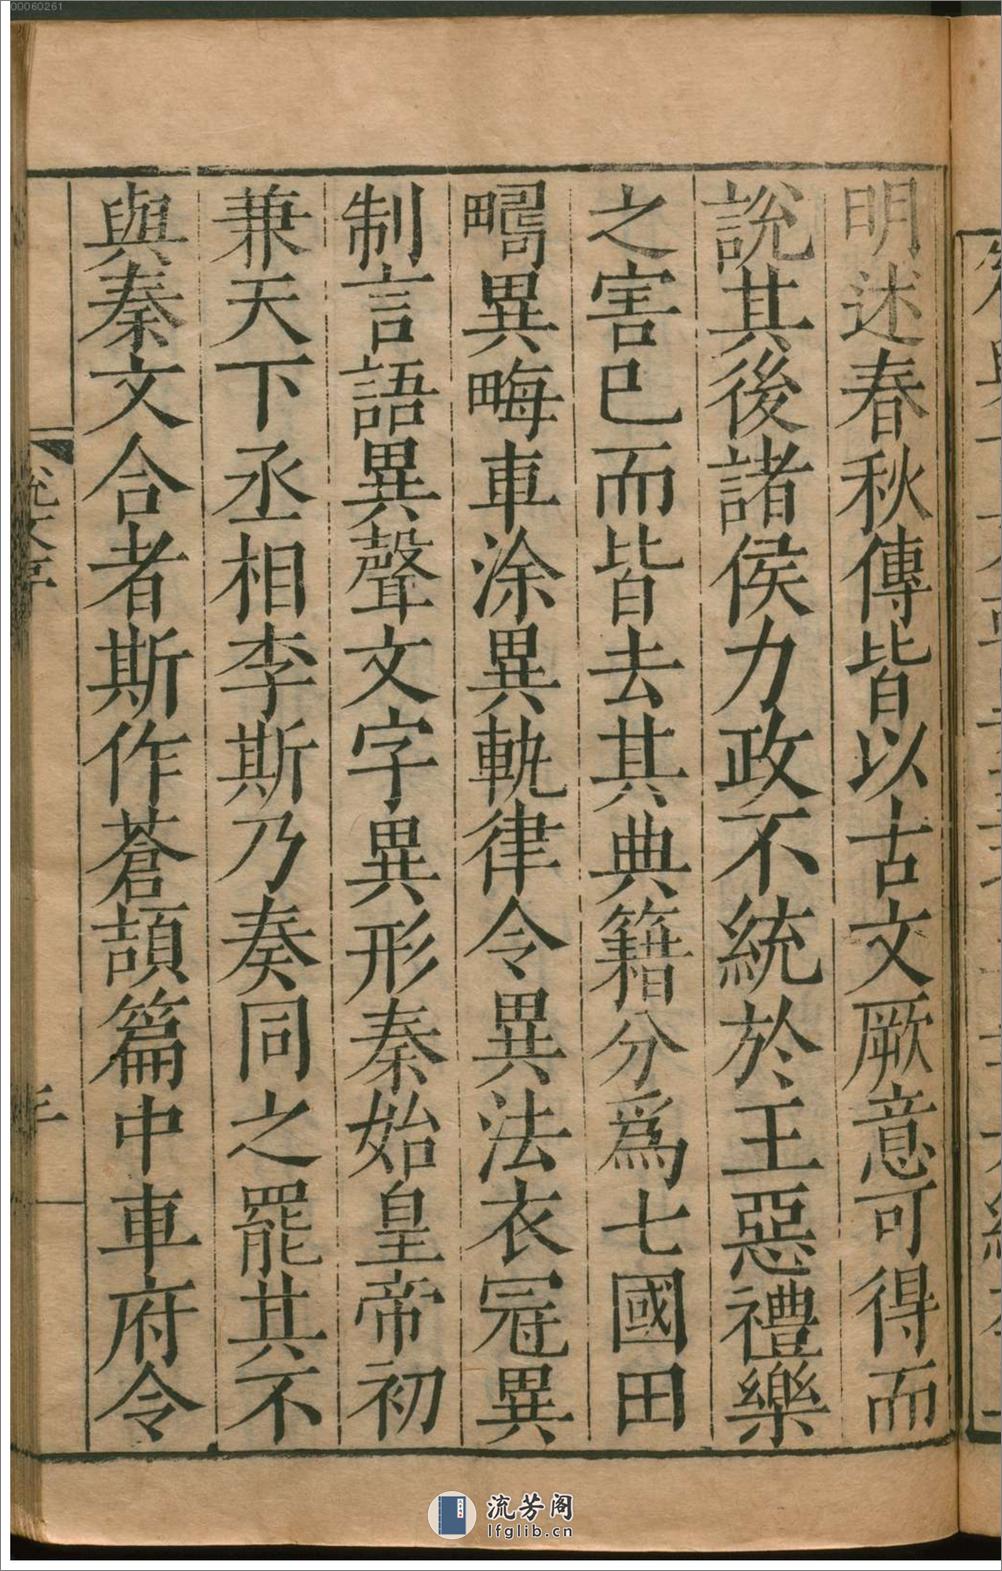 00060261
明述春秋傳皆以古文厥意可得而
說其後諸侯力政不統於王惡禮樂
之害已而皆去其典籍分爲七國田
疇異畮車涂異軌律令異法衣冠異
制言語異聲文字異形秦始皇帝初
兼天下丞相李斯乃奏同之罷其不
與秦文合者斯作蒼頡篇中車府令
說文序
流芳阁
lfglib.cn